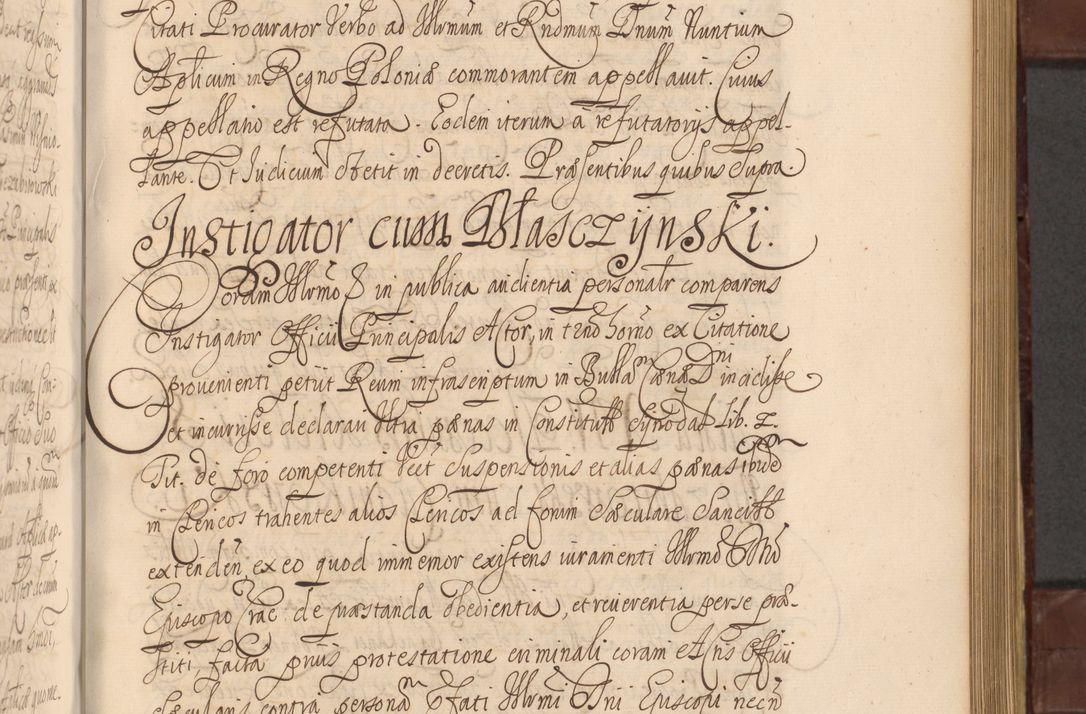 Citati Procurator Verbo ad Illrmũm et Rndmũm Dnum Nuntium
Aplicum in Regno Poloniæ commorantem appellavit. Cuius
appellatio est refutata. Eodem iterum a refutatorijs appel-
lante. Et Iudicium stetit in decretis. Præsentibus quibus supra.
Instigator cum Błasczÿnski.
Coram Illrmo in publica audientia personalr comparens
Instigator Officii Principalis Actor, in trño horño ex Citatione
provenienti petiit Reum infrascriptum in Bulla Cæna Dni incidisse
et incurrisse declarari pænas in Constitut Synodal Lib. 2.
Tit. de foro competenti suspensionis et alias pænas ibide
in Clericos trahentes alios Clericos ad forum Sæculare
extendeñ ex eo quod immemor existens iuramenti Illrmo
Episcopo Crac de præstanda obedientia, et reverentia per se præ-
stiti, facta prius protestatione criminali coram Actis Officii
contra persona Illrmi Dni Episcopi necñ